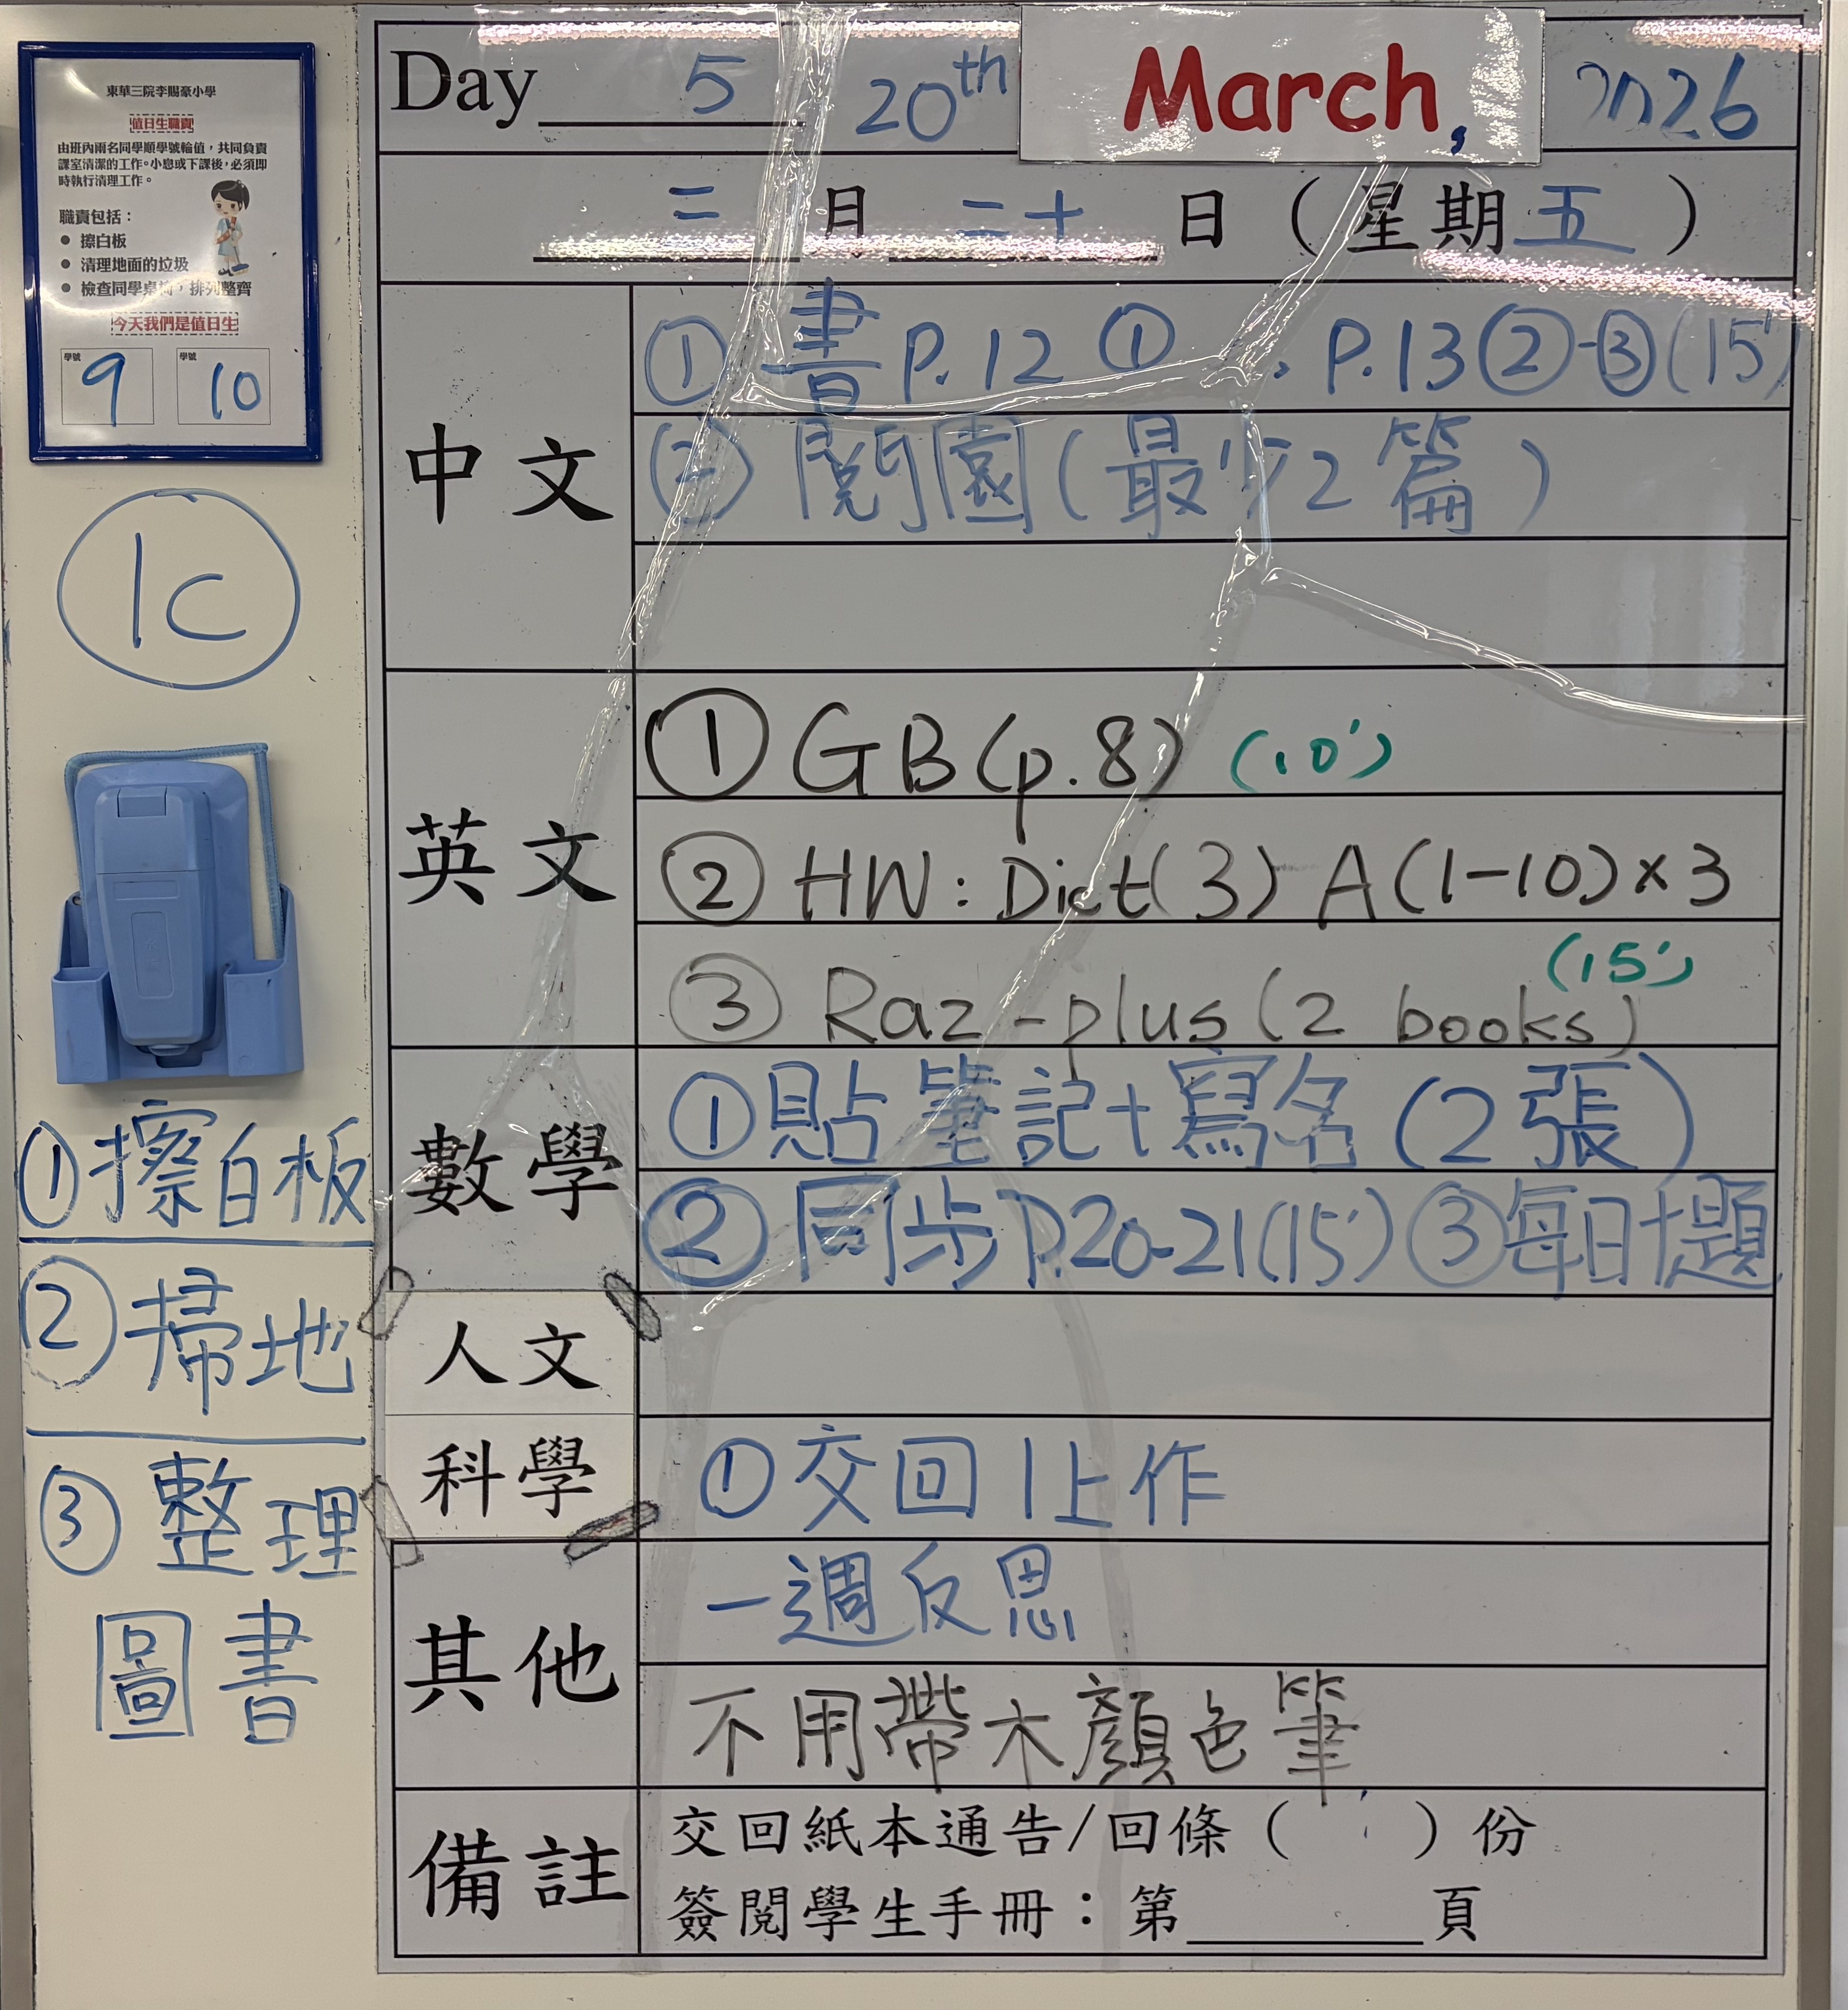 東華三院李賜豪小學
值日生職責
由班內兩名同學順學號輪值，共同負責
課室清潔的工作。小息或下課後，必須即
時執行清理工作。
職責包括：
● 擦白板
● 清理地面的垃圾
● 檢查同學桌椅，排列整齊
今天我們是值日生
學號 學號
9 10
1C
①擦白板
②掃地
③整理
圖書
Day 5 20th March, 2026
月 二十 日（星期五）
中文
①書 P.12 ①、P.13 ②-③(15')
② 閱園(最少2篇)
英文
① GB(p.8) (10')
② HW: Dict(3) A(1-10)×3
(15')
③ Raz-plus(2 books)
數學
①貼筆記+寫名(2張)
②同步P.20-21(15')③每日十題
人文
科學
①交回1上作
其他
一週反思
不用帶木顏色筆
備註
交回紙本通告/回條（ ）份
簽閱學生手冊：第____頁